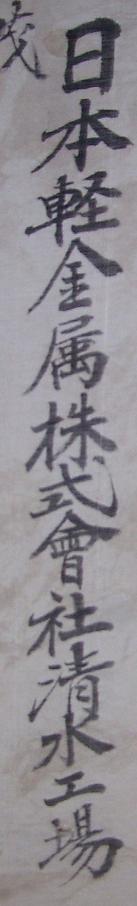 日本軽金属株式會社清水工場